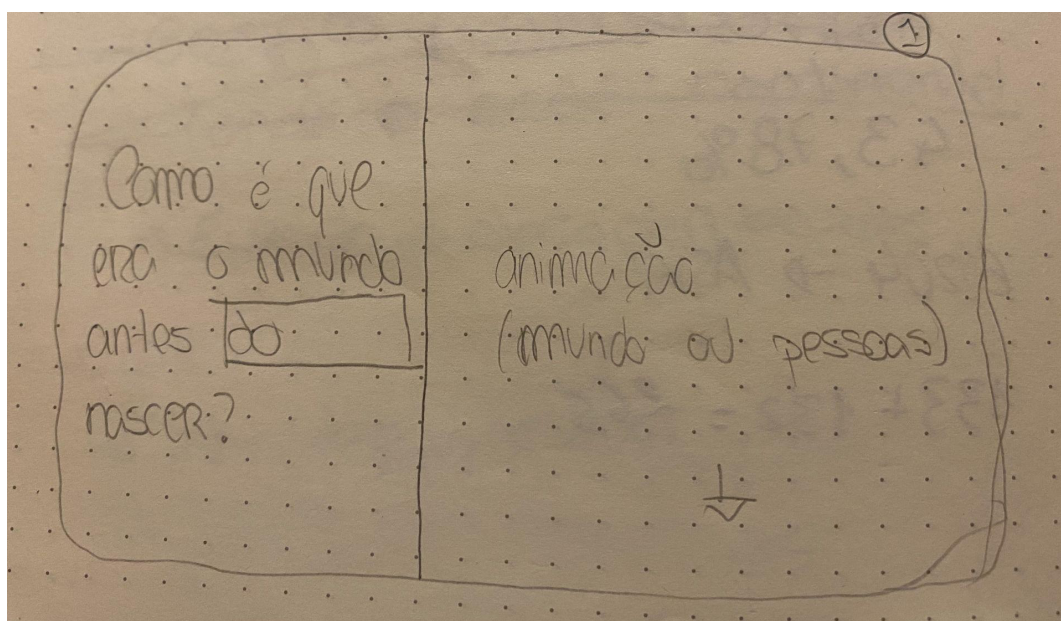 1
Como é que
era o mundo
antes do
nascer?
animação
(mundo ou pessoas)